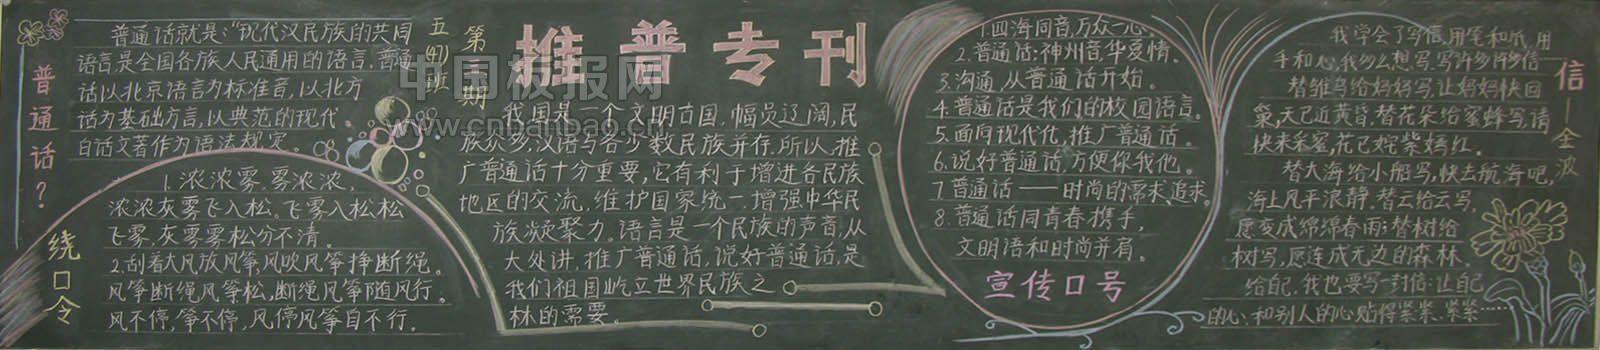 普通话？
普通话就是："现代汉民族的共同
语言,是全国各族人民通用的语言,普通
话以北京语言为标准音,以北方
话为基础方言,以典范的现代
白话文著作为语法规定。
绕口令
1.浓浓雾,雾浓浓,
浓浓灰雾飞入松。飞雾入松松
飞雾,灰雾雾松分不清。
2.刮着大风放风筝,风吹风筝挣断绳。
风筝断绳风筝松,断绳风筝随风行。
风不停,筝不停,风停风筝自不行。
五(4)班
第三期
推普专刊
中国板报网
www.cnbanbao.cn
我国是一个文明古国,幅员辽阔,民
族众多,汉语与各少数民族并存,所以,推
广普通话十分重要,它有利于增进各民族
地区的交流,维护国家统一,增强中华民
族凝聚力。语言是一个民族的声音,从
大处讲,推广普通话,说好普通话,是
我们祖国屹立世界民族之
林的需要。
1.四海同音,万众一心。
2.普通话:神州音,华夏情。
3.沟通,从普通话开始。
4.普通话是我们的校园语言。
5.面向现代化,推广普通话。
6.说好普通话,方便你我他。
7.普通话——时尚的需求、追求。
8.普通话同青春携手,
文明语和时尚并肩。
宣传口号
信—金波
我学会了写信,用笔和纸,用
手和心,我多么想写,写许多许多信——
替雏鸟给妈妈写,让妈妈快回
巢,天已近黄昏,替花朵给蜜蜂写,请
快来采蜜,花已姹紫嫣红。
替大海给小船写,快去航海吧,
海上风平浪静,替云给云写,
愿变成绵绵春雨;替树给
树写,愿连成无边的森林。
给自己,我也要写一封信:让自己
的心,和别人的心贴得紧紧、紧紧……